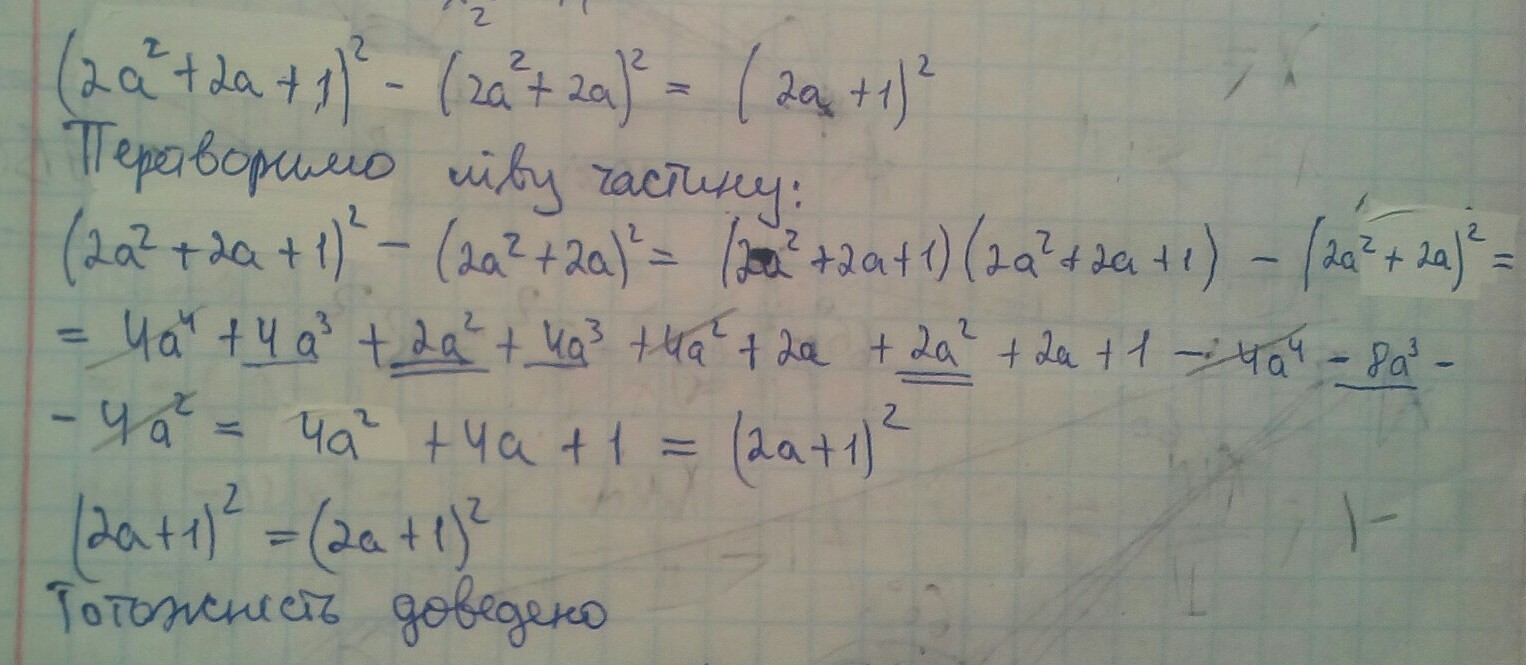 (2a² + 2a + 1)² - (2a² + 2a)² = (2a + 1)²
Перетворимо ліву частину:
(2a² + 2a + 1)² - (2a² + 2a)² = (2a² + 2a + 1)(2a² + 2a + 1) - (2a² + 2a)² =
= 4a⁴ + 4a³ + 2a² + 4a³ + 4a² + 2a + 2a² + 2a + 1 - 4a⁴ - 8a³ -
- 4a² = 4a² + 4a + 1 = (2a + 1)²
(2a + 1)² = (2a + 1)²
Тотожність доведено